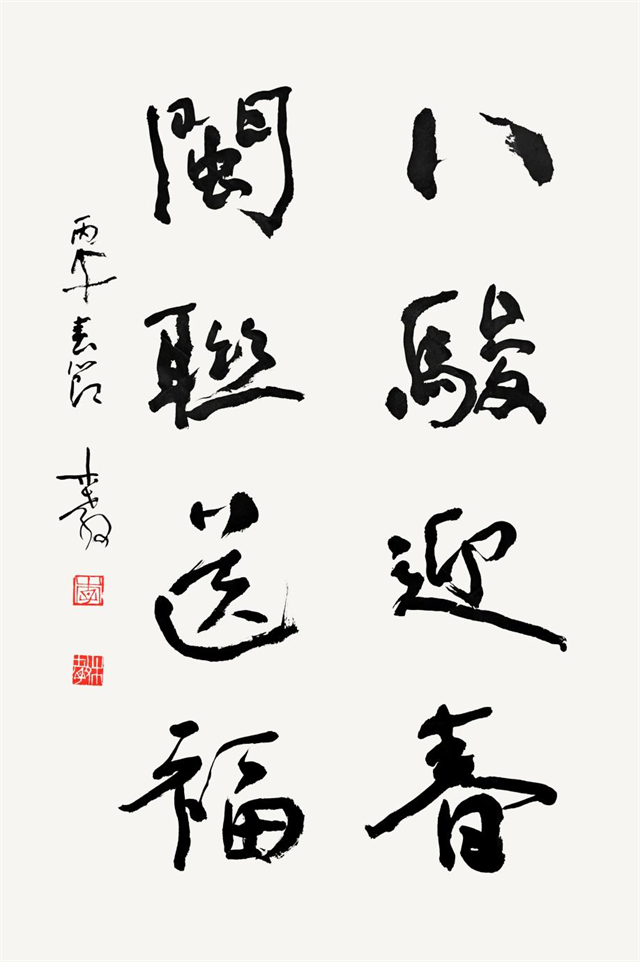 八駿迎春
閩聯送福
丙午春節